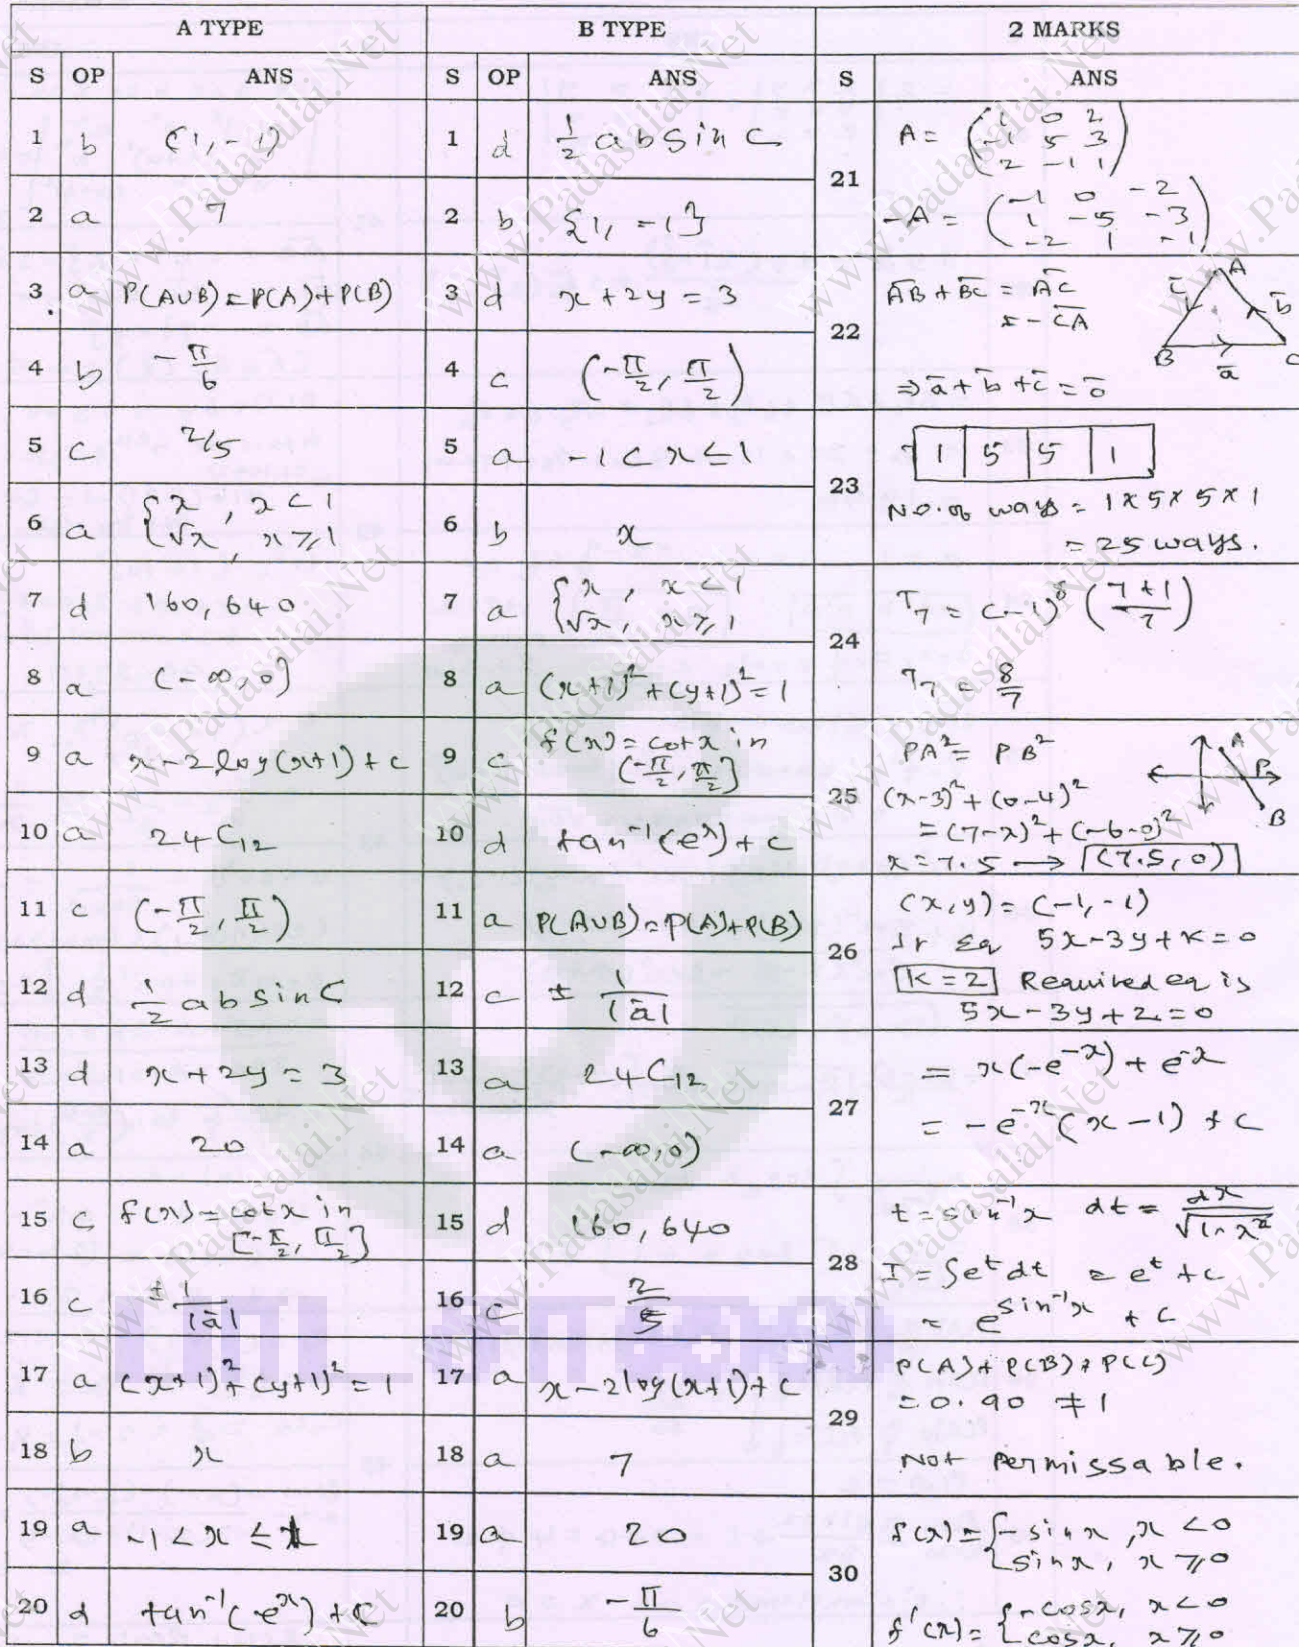 A TYPE B TYPE 2 MARKS
S OP ANS S OP ANS S ANS
1 b (1, -1)
2 a 7
3 a P(A∪B) = P(A) + P(B)
4 b -π/6
5 c 2/5
6 a { x , x < 1
√x x ≥ 1
7 d 160, 640.
8 a (-∞, 0]
9 a x - 2 log(x+1) + c
10 a 24C12
11 c (-π/2, π/2)
12 d 1/2 ab sin C
13 d x + 2y = 3
14 a 20
15 c f(x) = cot x in
[-π/2, π/2]
16 c ± 1/|ā|
17 a (x+1)² + (y+1)² = 1
18 b x
19 a -1 < x ≤ 1
20 d tan⁻¹(eˣ) + C
1 d 1/2 ab sin C
2 b {1, -1}
3 d x + 2y = 3
4 c (-π/2, π/2)
5 a -1 < x ≤ 1
6 b x
7 a { x , x < 1
√x, x ≥ 1
8 a (x+1)² + (y+1)² = 1
9 c f(x) = cot x in
[-π/2, π/2]
10 d tan⁻¹(eˣ) + c
11 a P(A∪B) = P(A) + P(B)
12 c ± 1/|ā|
13 a 24C12
14 a (-∞, 0)
15 d 160, 640
16 c 2/5
17 a x - 2 log(x+1) + c
18 a 7
19 a 20
20 b -π/6
21 A = ( 1 0 2
-1 5 3
2 -1 1 )
-A = ( -1 0 -2
1 -5 -3
-2 1 -1 )
22 AB + BC = AC
= - CA
⇒ a + b + c = 0
A
c b
B a C
23 1 5 5 1
No. of ways = 1 x 5 x 5 x 1
= 25 ways.
24 T7 = (-1)⁸ (7+1/7)
T7 = 8/7
25 PA² = PB²
(x-3)² + (0-4)²
= (7-x)² + (-6-0)²
x = 7.5 → (7.5, 0)
A P B
26 (x, y) = (-1, -1)
5x - 3y + K = 0
K = 2 Required eq is
5x - 3y + 2 = 0
27 = x(-e⁻ˣ) + e⁻ˣ
= -e⁻ˣ(x - 1) + c
28 t = sin⁻¹x dt = dx/√1-x²
I = ∫eᵗ dt = eᵗ + c
= e^sin⁻¹x + c
29 P(A) + P(B) + P(C)
= 0.90 ≠ 1
Not permissable.
30 f(x) = { -sin x , x < 0
sin x, x ≥ 0
f'(x) = { -cos x, x < 0
cos x, x ≥ 0
www.Padasalai.Net